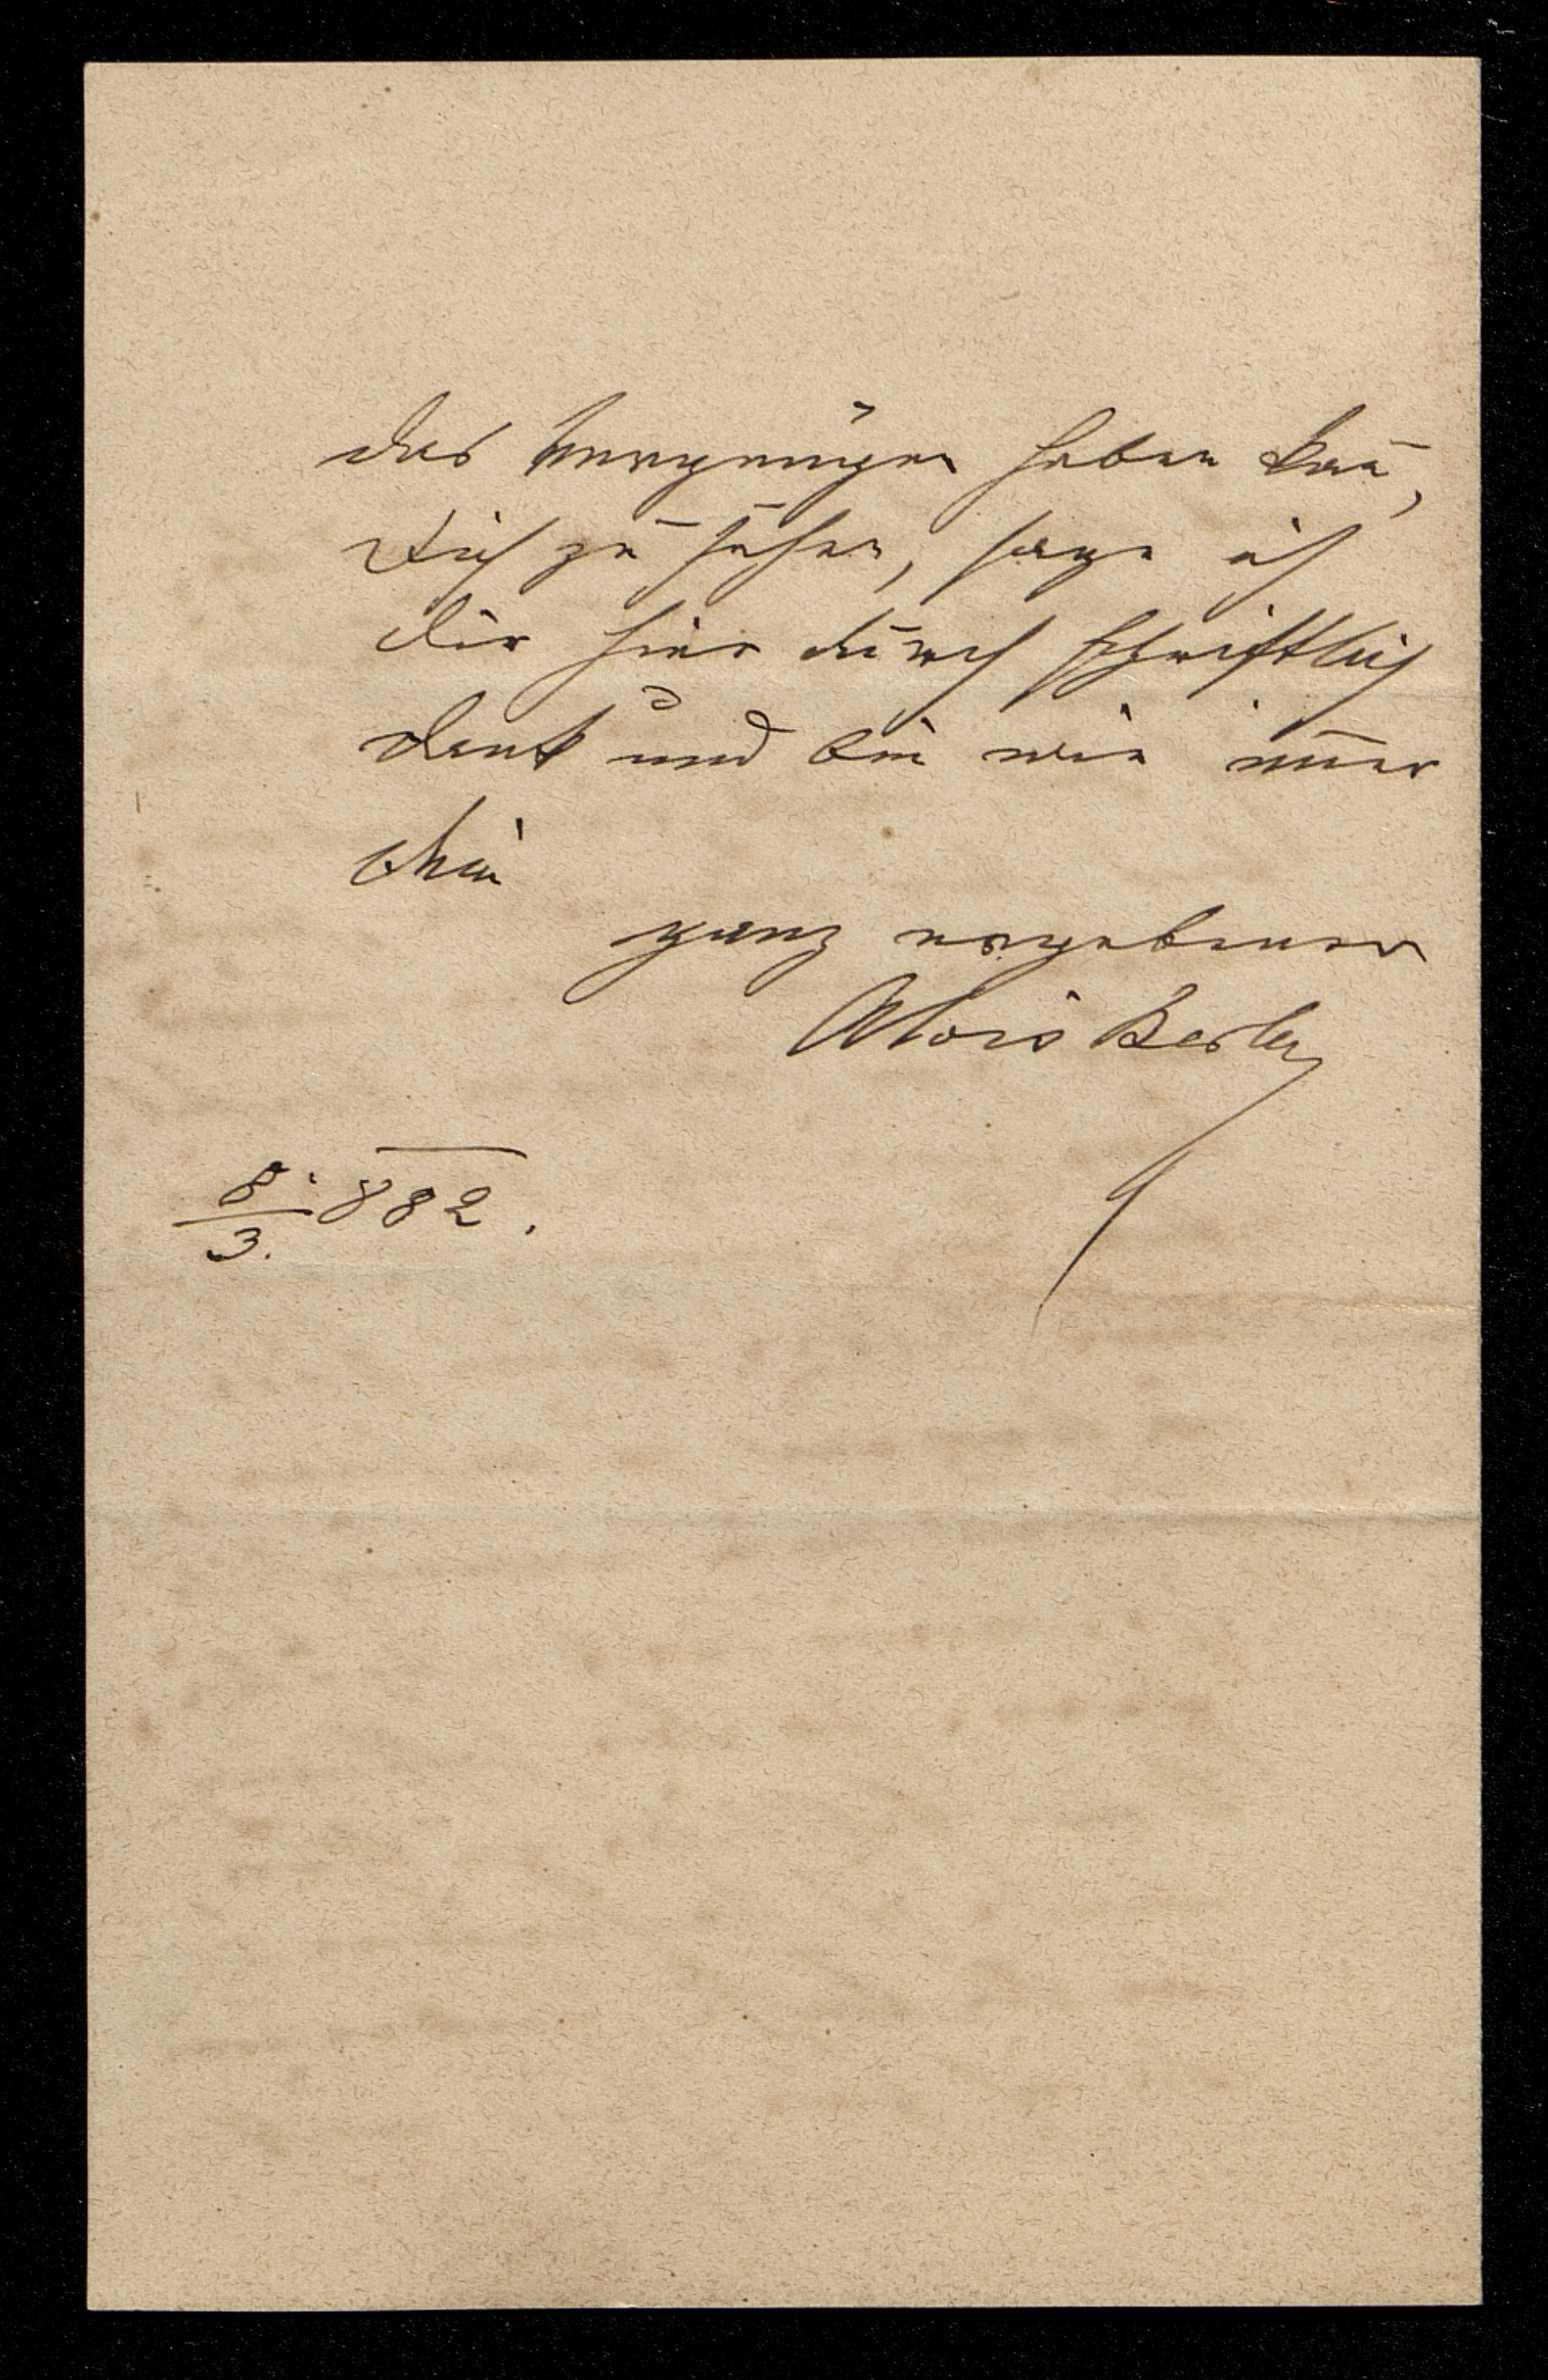 das Vergnügen haben kan̄,
Dich zu sehen, sage ich
Dir hier durch schriftlich
Dank und bin wie im̄er
Dein
ganz ergebener
Alois Berla
8./3. 882.